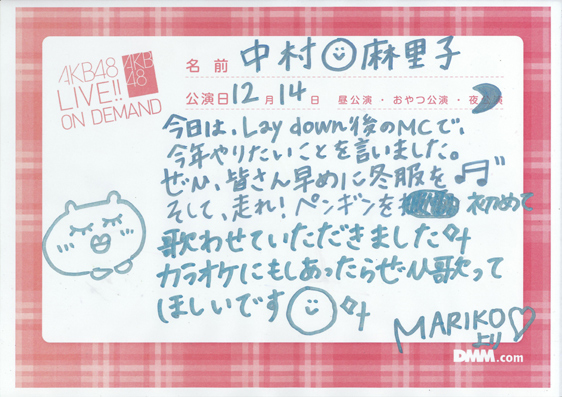 AKB48
LIVE!!
ON DEMAND
AKB
48
名前 中村麻里子
公演日 12月14日 昼公演・おやつ公演・夜公演
今日は、Lay down後のMCで、
今年やりたいことを言いました。
ぜひ、皆さん早めに冬服を
そして、走れ!ペンギンを 初めて
歌わせていただきました
カラオケにもしあったらぜひ歌って
ほしいです
MARIKO♡
より
DMM.com